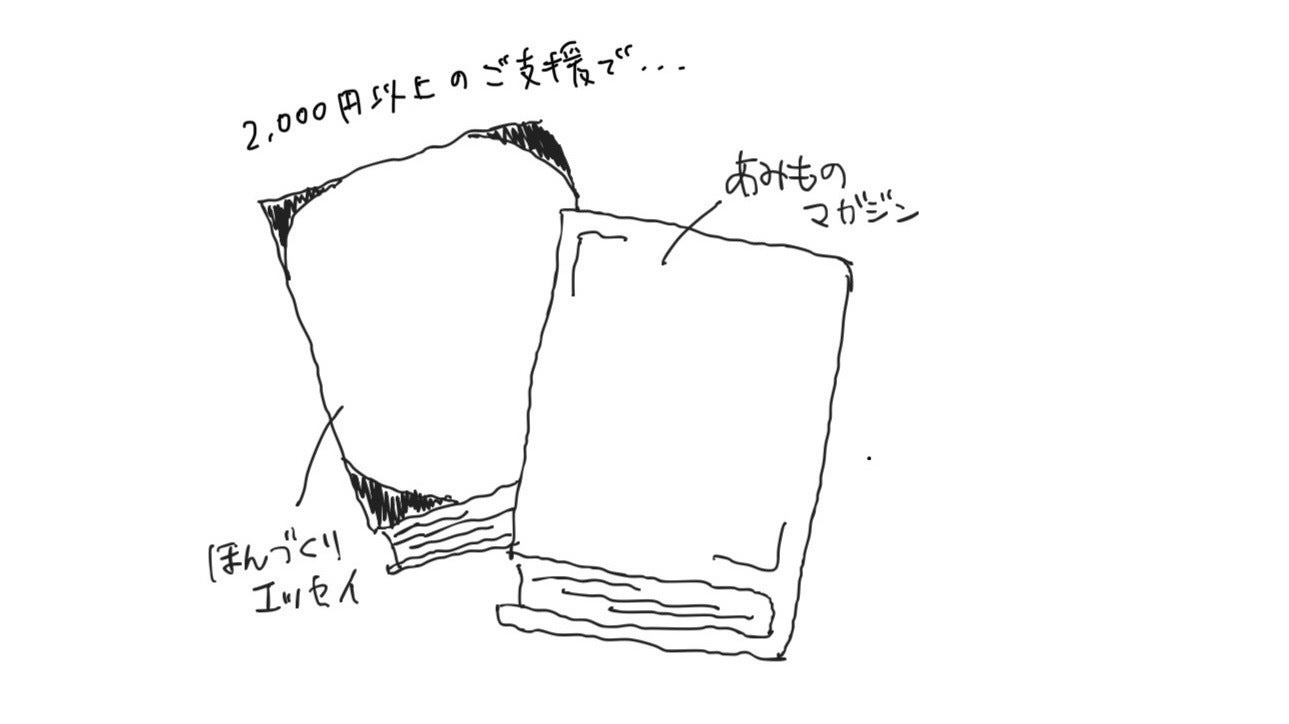 2,000円以上のご支援で...
あみもの
マガジン
ほんづくり
エッセイ